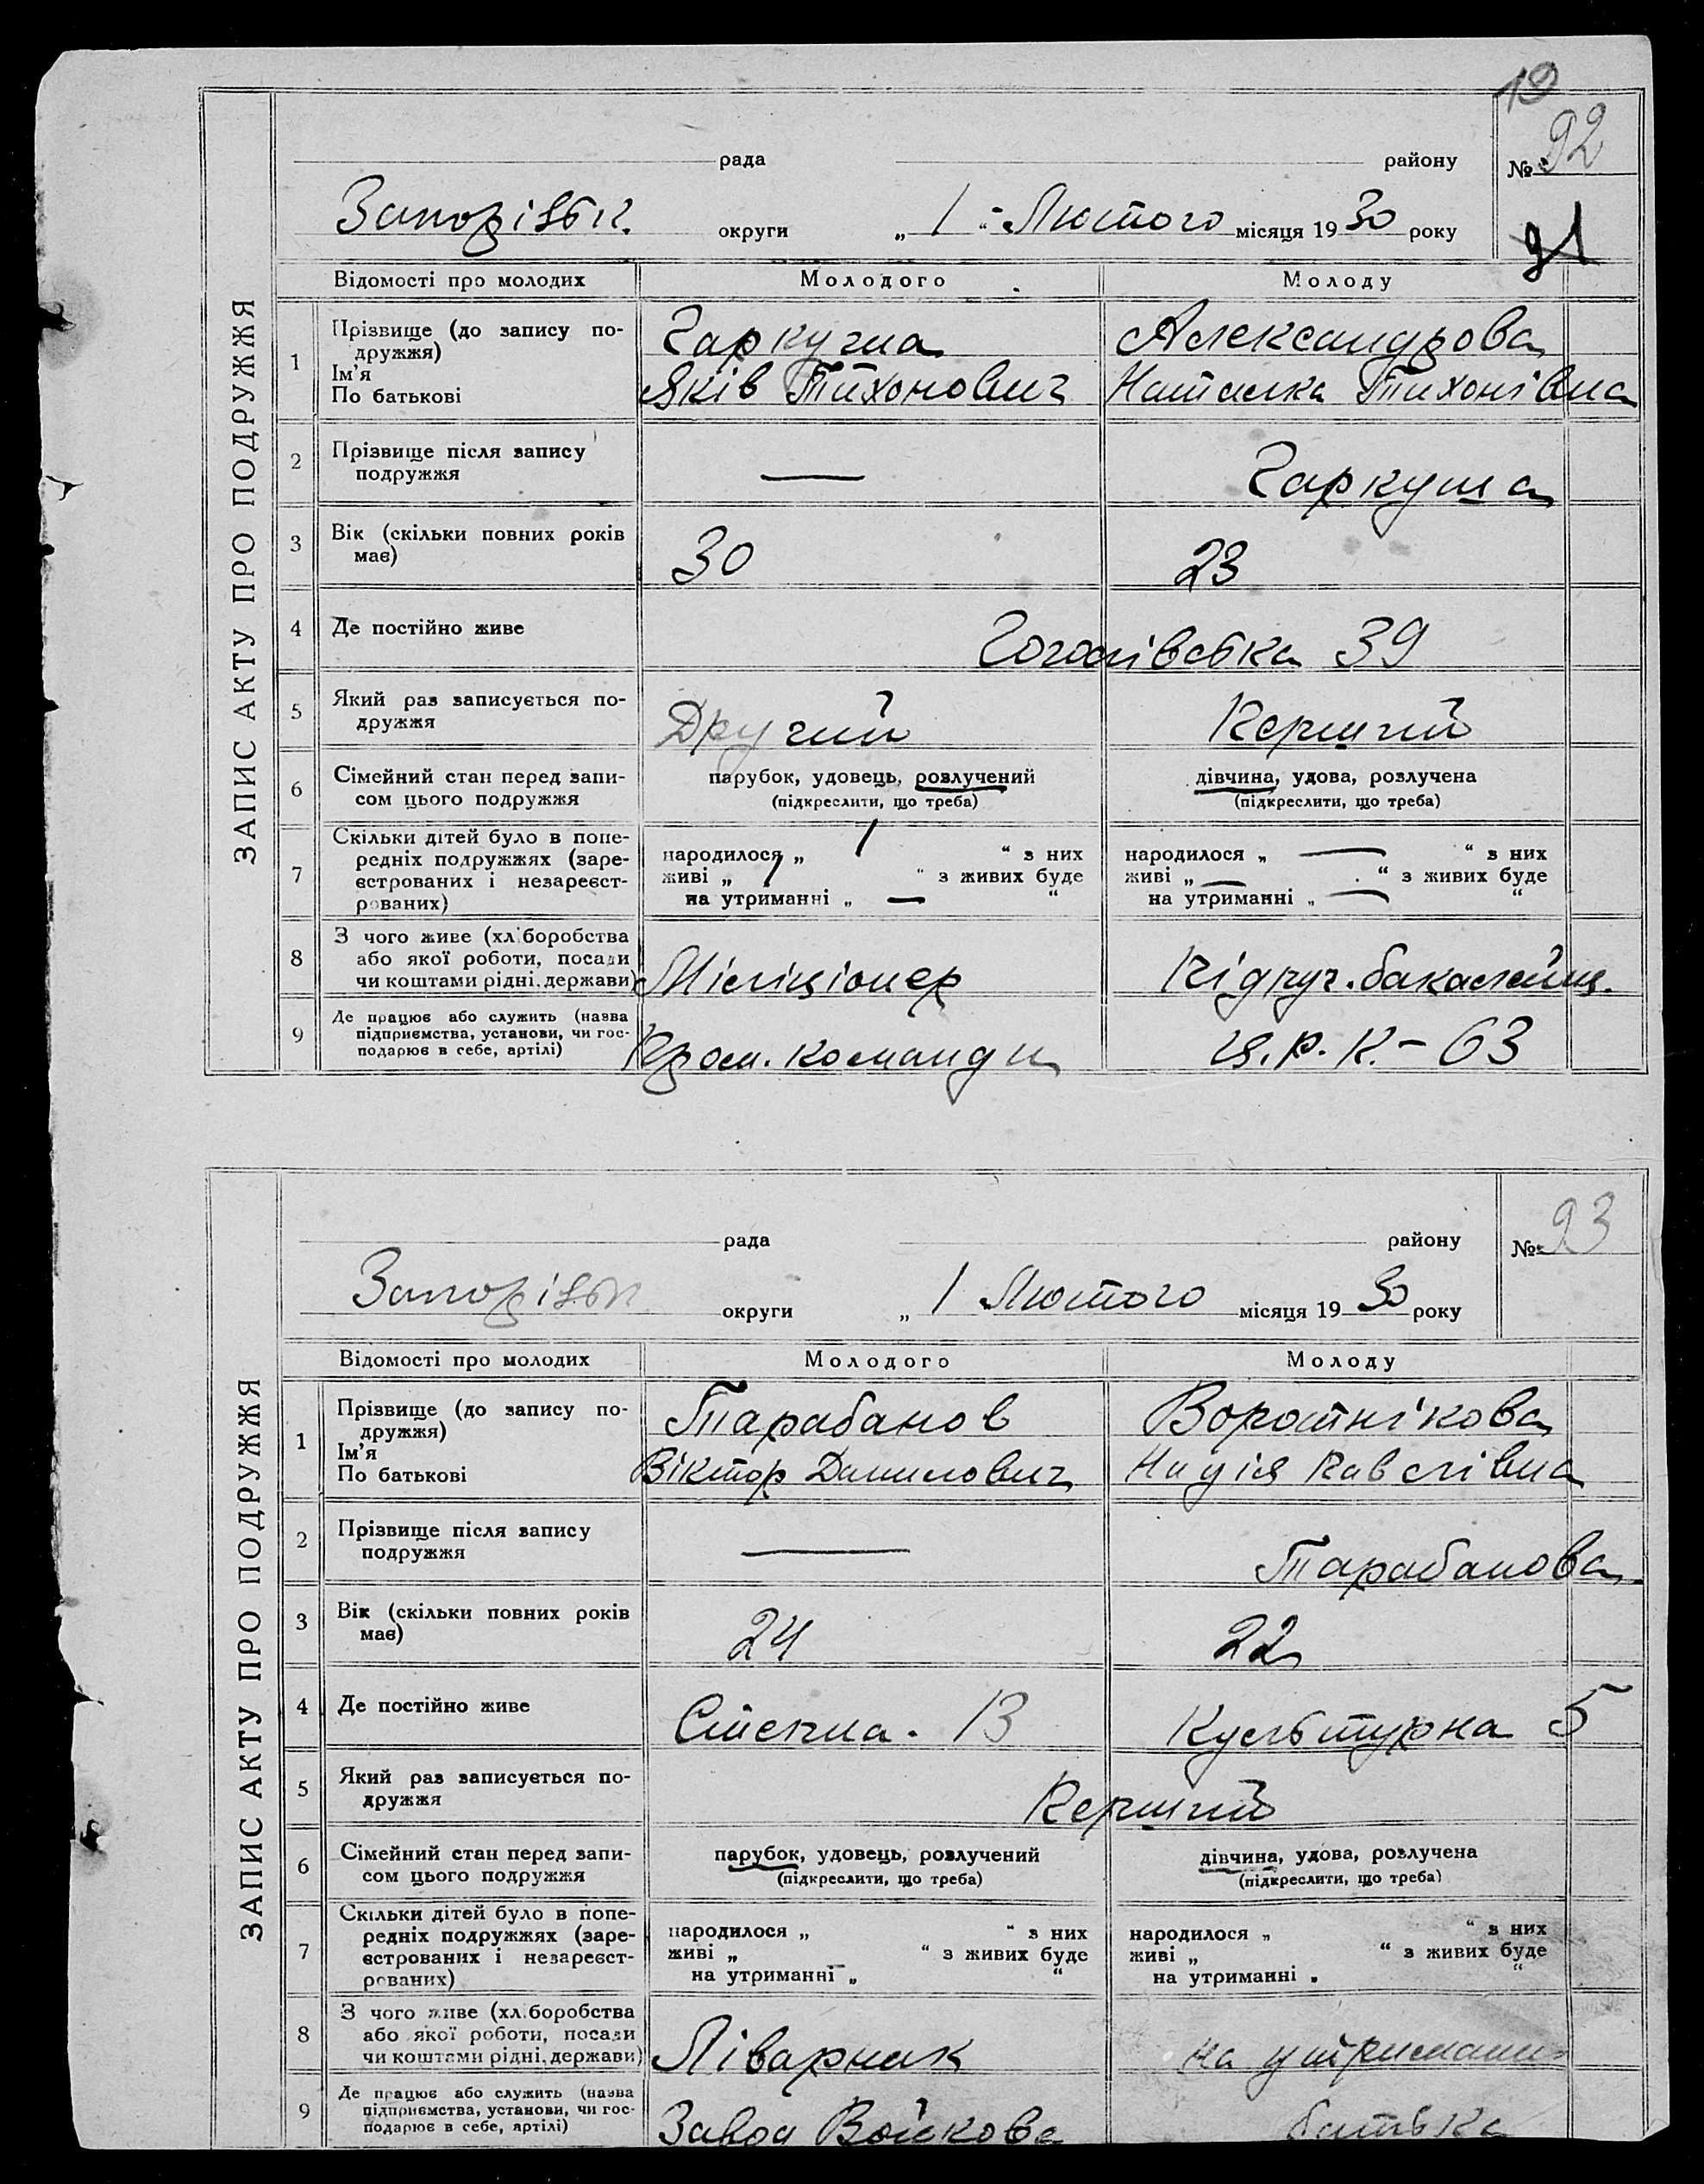 19
рада району № 92
Запорізьк. округи „ 1 “ Лютого місяця 1930 року
91
ЗАПИС АКТУ ПРО ПОДРУЖЖЯ
Відомості про молодих Молодого Молоду
1 Прізвище (до запису по-
дружжя) Гаркуша Александрова
Ім’я
По батькові Яків Тихонович Наталка Тихонівна
2 Прізвище після запису
подружжя — Гаркуша
3 Вік (скільки повних років
має) 30 23
4 Де постійно живе Гоголівська 39
5 Який раз записується по-
дружжя Другий Перший
6 Сімейний стан перед запи-
сом цього подружжя
парубок, удовець, розлучений дівчина, удова, розлучена
(підкреслити, що треба) (підкреслити, що треба)
7 Скільки дітей було в попе-
редніх подружжях (заре-
єстрованих і незареєст-
рованих)
народилося „ 1 “ з них народилося „ — “ з них
живі „ 1 “ з живих буде живі „ — “ з живих буде
на утриманні „ — “ на утриманні „ — “
8 З чого живе (хліборобства
або якої роботи, посади
чи коштами рідні, держави) Міліціонер Підруч. бакалейщ.
9 Де працює або служить (назва
підприємства, установи, чи гос-
подарює в себе, артілі) Пром. команди Ц.Р.К. – 63
рада району № 93
Запорізьк округи „ 1 Лютого місяця 1930 року
ЗАПИС АКТУ ПРО ПОДРУЖЖЯ
Відомості про молодих Молодого Молоду
1 Прізвище (до запису по-
дружжя) Тарабанов Воротнікова
Ім’я
По батькові Віктор Данилович Надія Павлівна
2 Прізвище після запису
подружжя — Тарабанова
3 Вік (скільки повних років
має) 24 22
4 Де постійно живе Степна. 13 Культурна 5
5 Який раз записується по-
дружжя Перший
6 Сімейний стан перед запи-
сом цього подружжя
парубок, удовець, розлучений дівчина, удова, розлучена
(підкреслити, що треба) (підкреслити, що треба)
7 Скільки дітей було в попе-
редніх подружжях (заре-
єстрованих і незареєст-
рованих)
народилося „ “ з них народилося „ “ з них
живі „ “ з живих буде живі „ “ з живих буде
на утриманні „ “ на утриманні „ “
8 З чого живе (хліборобства
або якої роботи, посади
чи коштами рідні, держави) Ліварник на утриманні
9 Де працює або служить (назва
підприємства, установи, чи гос-
подарює в себе, артілі) Завод Войкова батька